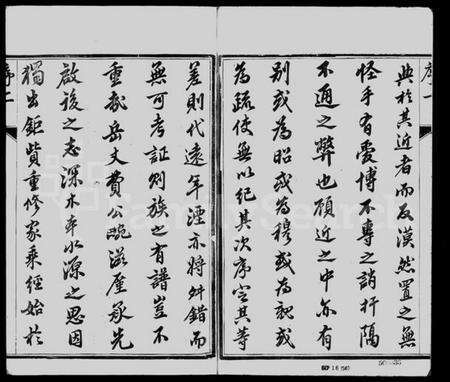 序一
典於其近者而反漠然置之無
怪乎有愛博不專之誚扞隔
不通之弊也顧近之中亦有
别或為昭或為穆或為親或
為疏使無以紀其次序定其等
差則代遠年湮亦將舛錯而
無可考証則族之有譜豈不
重歟岳丈費公畹滋屋承先
啟後之志深木本水源之思因
獨出鉅貲重修家乘經始於
序二
FamilySearch